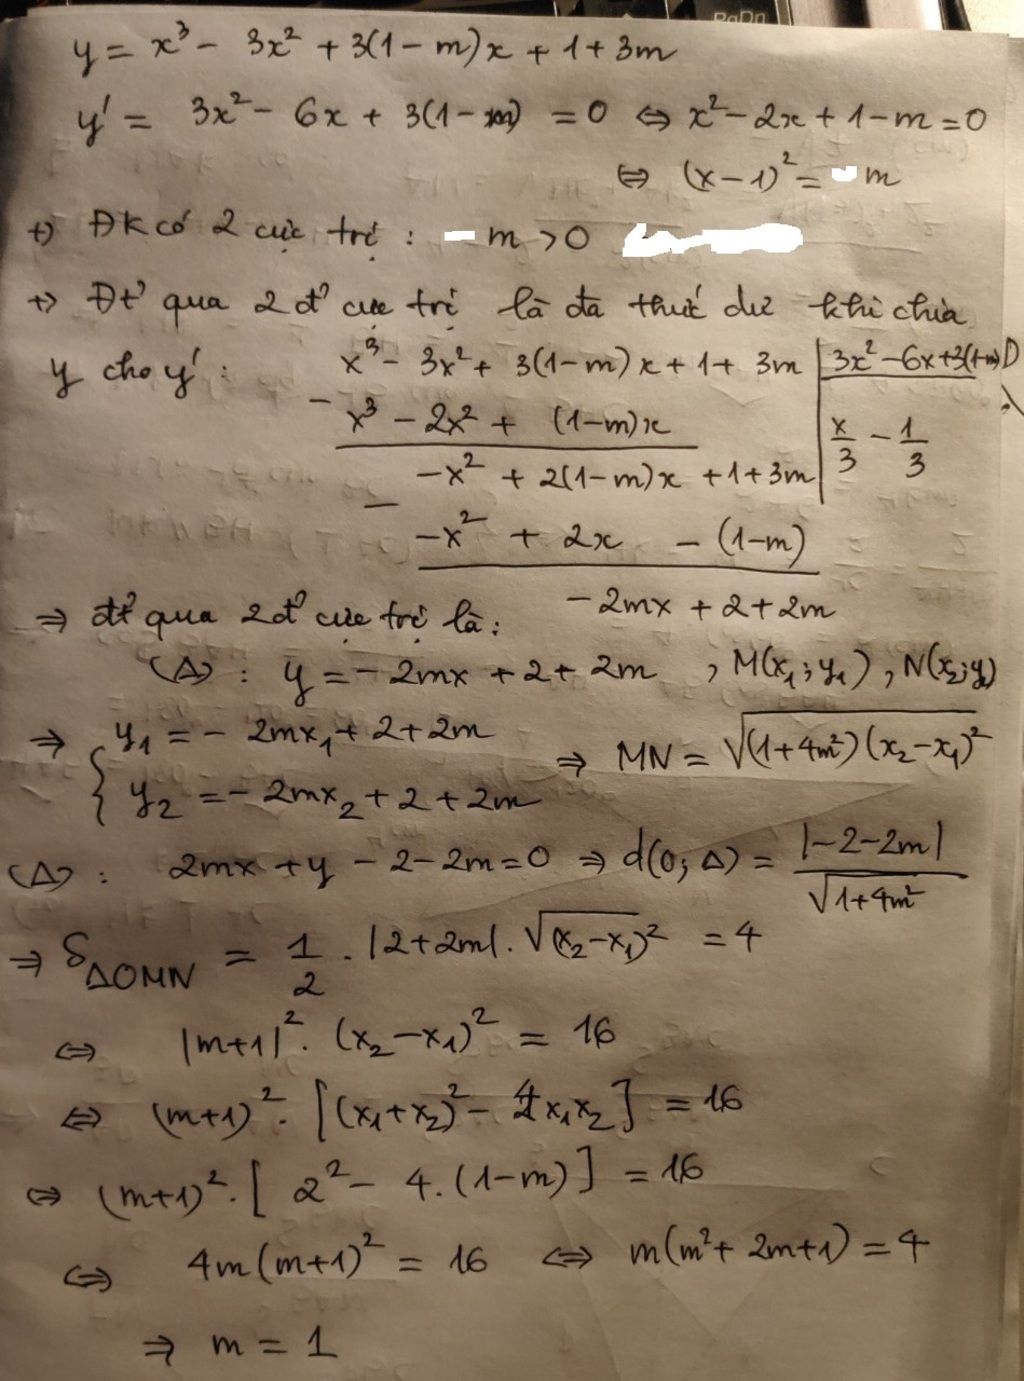 y = x³ - 3x² + 3(1-m)x + 1 + 3m
y' = 3x² - 6x + 3(1-m) = 0 ⇔ x² - 2x + 1 - m = 0
⇔ (x-1)² = m
+) ĐK có 2 cực trị : m > 0
+) Đt' qua 2 đ' cực trị là đa thức dư khi chia
y cho y' : x³ - 3x² + 3(1-m)x + 1 + 3m | 3x² - 6x + 3(1-m)
- x³ - 2x² + (1-m)x | x/3 - 1/3
-x² + 2(1-m)x + 1 + 3m
- -x² + 2x - (1-m)
-2mx + 2 + 2m
⇒ đt' qua 2 đ' cực trị là :
(Δ) : y = -2mx + 2 + 2m , M(x₁; y₁) , N(x₂; y₂)
⇒ { y₁ = -2mx₁ + 2 + 2m ⇒ MN = √((1+4m²)(x₂-x₁)²)
y₂ = -2mx₂ + 2 + 2m
(Δ) : 2mx + y - 2 - 2m = 0 ⇒ d(0; Δ) = |-2-2m| / √(1+4m²)
⇒ S_ΔOMN = 1/2 . |2+2m| . √(x₂-x₁)² = 4
⇔ |m+1|² . (x₂-x₁)² = 16
⇔ (m+1)² . [(x₁+x₂)² - 4x₁x₂] = 16
⇔ (m+1)² . [ 2² - 4.(1-m) ] = 16
⇔ 4m(m+1)² = 16 ⇔ m(m²+2m+1) = 4
⇒ m = 1